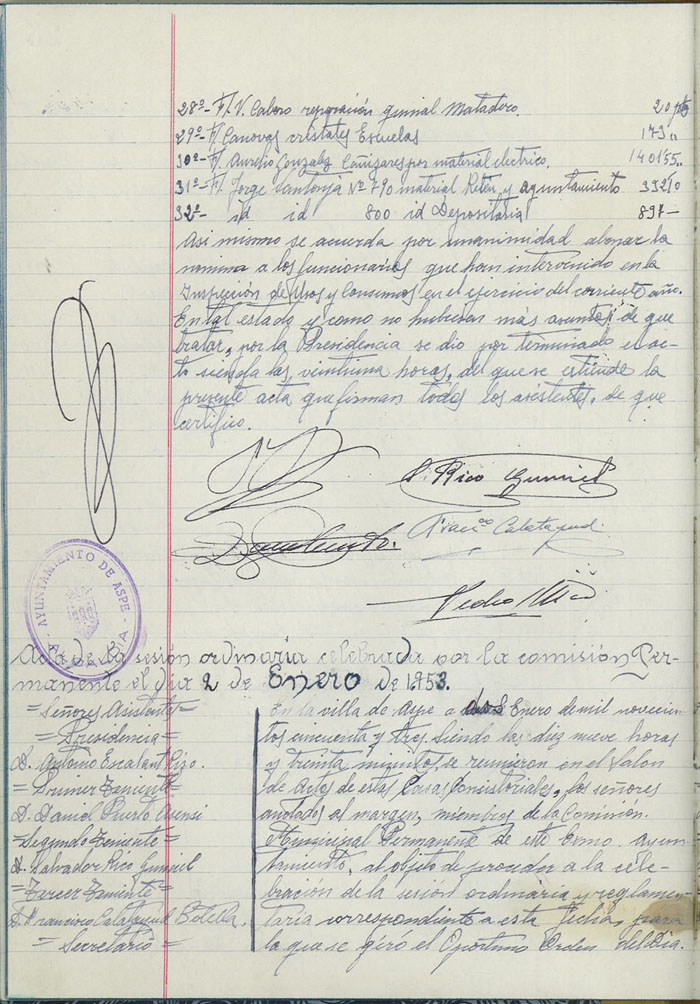 28º- F/. V. Calero reparación Matadero. 20 pts
29º- F/ Canovas cristales Escuelas 173 "
30º- F/. Aurelio Gonzalez Cañizares por material electrico, 1401'55 "
31º- F/. Jorge Santonja Nº 790 material Reten y ayuntamiento 332'10
32º- id id 800 id Depositaria 897 -
Asi mismo se acuerda por unanimidad abonar la
nomina a los funcionarios que han intervenido en la
Inspección de Usos y Consumos en el ejercicio del corriente año.
En tal estado y como no hubiesen más asuntos de que
tratar, por la Presidencia se dio por terminado el ac-
to siendo las veintiuna horas, del que se extiende la
presente acta que firman todos los asistentes, de que
certifico.
S. Rico
Franco Calatayud
Pedro
AYUNTAMIENTO DE ASPE
ALCALDIA
Acta de la sesión ordinaria celebrada por la comisión Per-
manente el dia 2 de Enero de 1.953.
= Señores Asistentes =
= Presidencia =
D. Antonio Escalant Rizo.
= Primer Teniente =
D. Daniel Puerto Asensi
= Segundo Teniente =
D. Salvador Rico
= Tercer Teniente =
D. Francisco Calatayud Botella.
= Secretario =
En la villa de Aspe a dos Enero de mil novecien-
tos cincuenta y tres. Siendo las diez nueve horas
y treinta minutos, se reunieron en el Salon
de Actos de estas Casas Consistoriales, los señores
anotados al margen, miembros de la Comisión
Municipal Permanente de este Excmo. ayun-
tamiento, al objeto de proceder a la cele-
bración de la sesión ordinaria y reglamen-
taria correspondiente a esta fecha, para
la que se giró el Oportuno Orden del Dia.